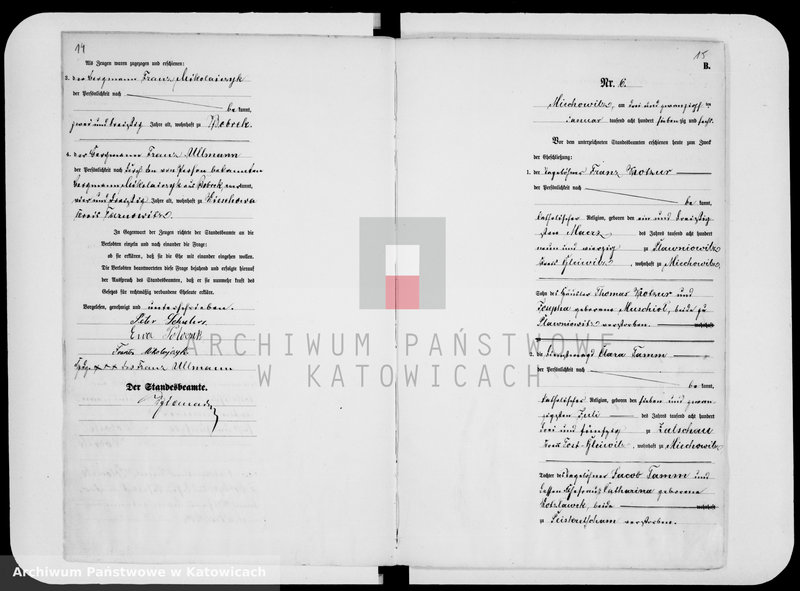 14
Als Zeugen waren zugezogen und erschienen:
3. der Bergmann Franz Mikolaiczyk
der Persönlichkeit nach
be kannt,
zwei und dreißig Jahre alt, wohnhaft zu Bobrek.
4. der Bergmann Franz Ullmann
der Persönlichkeit nach durch den von Person bekannten
Bergmann Mikolaiczyk aus Bobrek, anerkannt,
vier und dreißig Jahre alt, wohnhaft zu Wieschowa
Kreis Tarnowitz.
In Gegenwart der Zeugen richtete der Standesbeamte an die
Verlobten einzeln und nach einander die Frage:
ob sie erklären, daß sie die Ehe mit einander eingehen wollen.
Die Verlobten beantworteten diese Frage bejahend und erfolgte hierauf
der Ausspruch des Standesbeamten, daß er sie nunmehr kraft des
Gesetzes für rechtmäßig verbundene Eheleute erkläre.
Vorgelesen, genehmigt und unterschrieben.
Peter
Ewa
Franz Mikolajczyk
xxx des Franz Ullmann
Der Standesbeamte.
15
B.
Nr. 6.
Miechowitz, am drei und zwanzigsten
Januar tausend acht hundert siebenzig und sechs.
Vor dem unterzeichneten Standesbeamten erschienen heute zum Zweck
der Eheschließung:
1. der Tagelöhner Franz
der Persönlichkeit nach
be kannt,
katholischer Religion, geboren den ein und dreißig
sten Maerz des Jahres tausend acht hundert
neun und vierzig zu Plawniowitz
Kreis Gleiwitz, wohnhaft zu Miechowitz,
Sohn des Häusler Thomas und
geborene Muschiol, beide zu
Plawniowitz verstorben. wohnhaft
2. die Dienstmagd Clara Tamm
der Persönlichkeit nach
be kannt,
katholischer Religion, geboren den sieben und zwan
zigsten Juli des Jahres tausend acht hundert
drei und fünfzig zu
Kreis Tost-Gleiwitz, wohnhaft zu Miechowitz
Tochter des Tagelöhner Jacob Tamm und
dessen Ehefrau Catharina geborene
beide wohnhaft
zu Peiskretscham verstorben.
ARCHIWUM PAŃSTWOWE
W KATOWICACH
Archiwum Państwowe w Katowicach